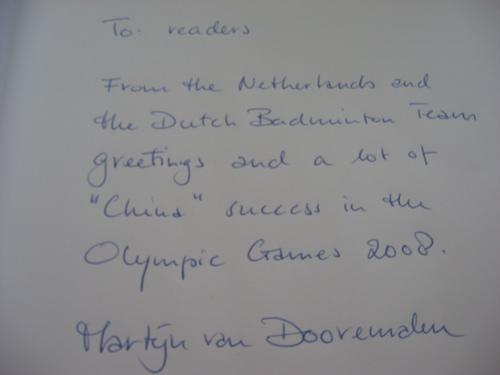 To: readers
From the Netherlands and
the Dutch Badminton Team
greetings and a lot of
"China" success in the
Olympic Games 2008.
Martijn van Dooremalen